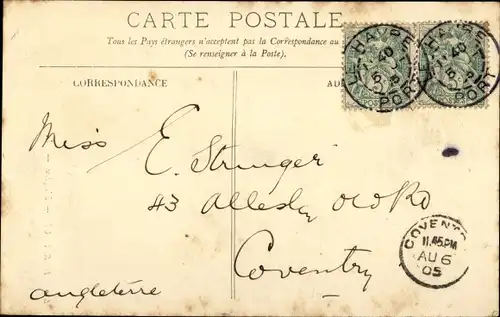 CARTE POSTALE
Tous les Pays étrangers n'acceptent pas la Correspondance au
(Se renseigner à la Poste)
CORRESPONDANCE
Miss E. Stringer
43 Allesley Old Rd
Coventry
Angleterre
LE HAVRE
PORT
LE HAVRE
PORT
COVENTRY
11.45PM
AU 6
05